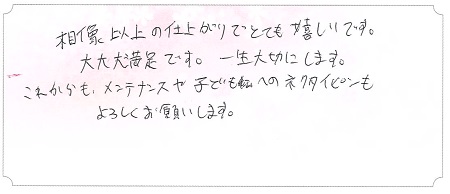 想像以上の仕上がりでとても嬉しいです。
大大大満足です。一生大切にします。
これからも、メンテナンスや子どもへのネクタイピンも
よろしくお願いします。